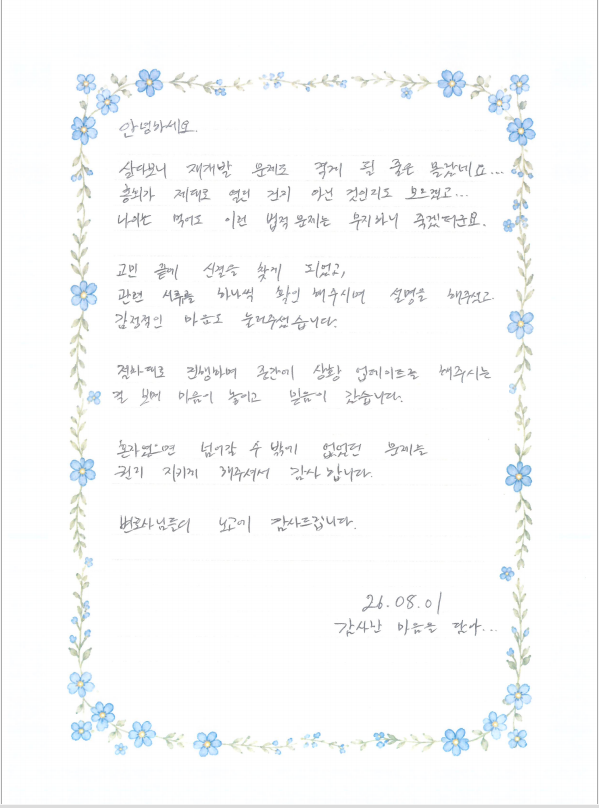 안녕하세요.
살다보니 재개발 문제도 겪게 될 줄은 몰랐네요...
제대로 였던 건지 아닌 것인지도 모르겠고...
나이는 먹어도 이런 법적 문제는 무지하니 죽겠더군요.
고민 끝에 신결을 찾게 되었고,
관련 서류를 하나씩 확인해주시며 설명을 해주셨고
감정적인 마음도 눌러주셨습니다.
절차대로 진행하며 중간에 상황 업데이트를 해주시는
걸 보며 마음이 놓이고 믿음이 갔습니다.
혼자였으면 넘어갈 수 밖에 없었던 문제를
권리 지키게 해주셔서 감사합니다.
변호사님들의 노고에 감사드립니다.
26.08.01
감사한 마음을 담아...